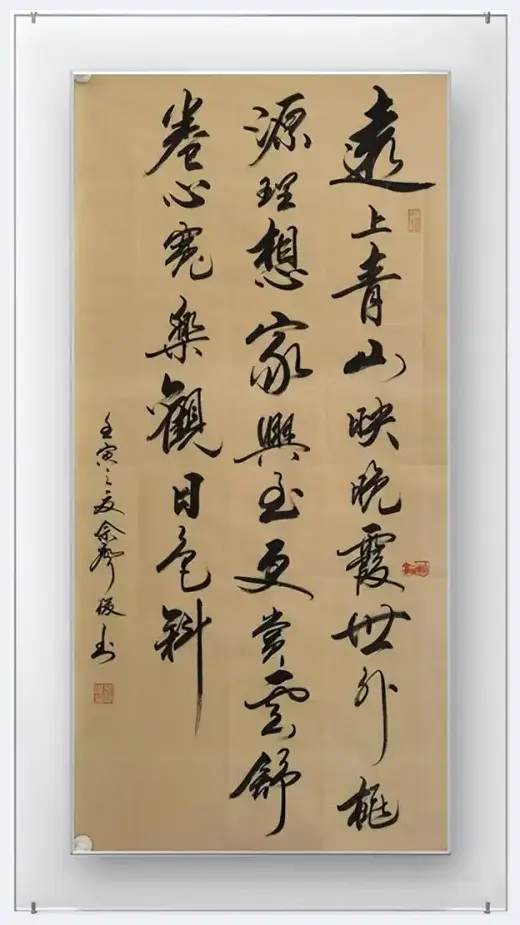 遠上青山映晚霞世外桃
源理想家興至更賞雲舒
卷心寬樂觀日色斜
壬寅之夏